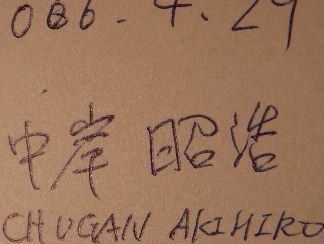 086.4.29
中岸 昭浩
CHUGAN AKIHIRO